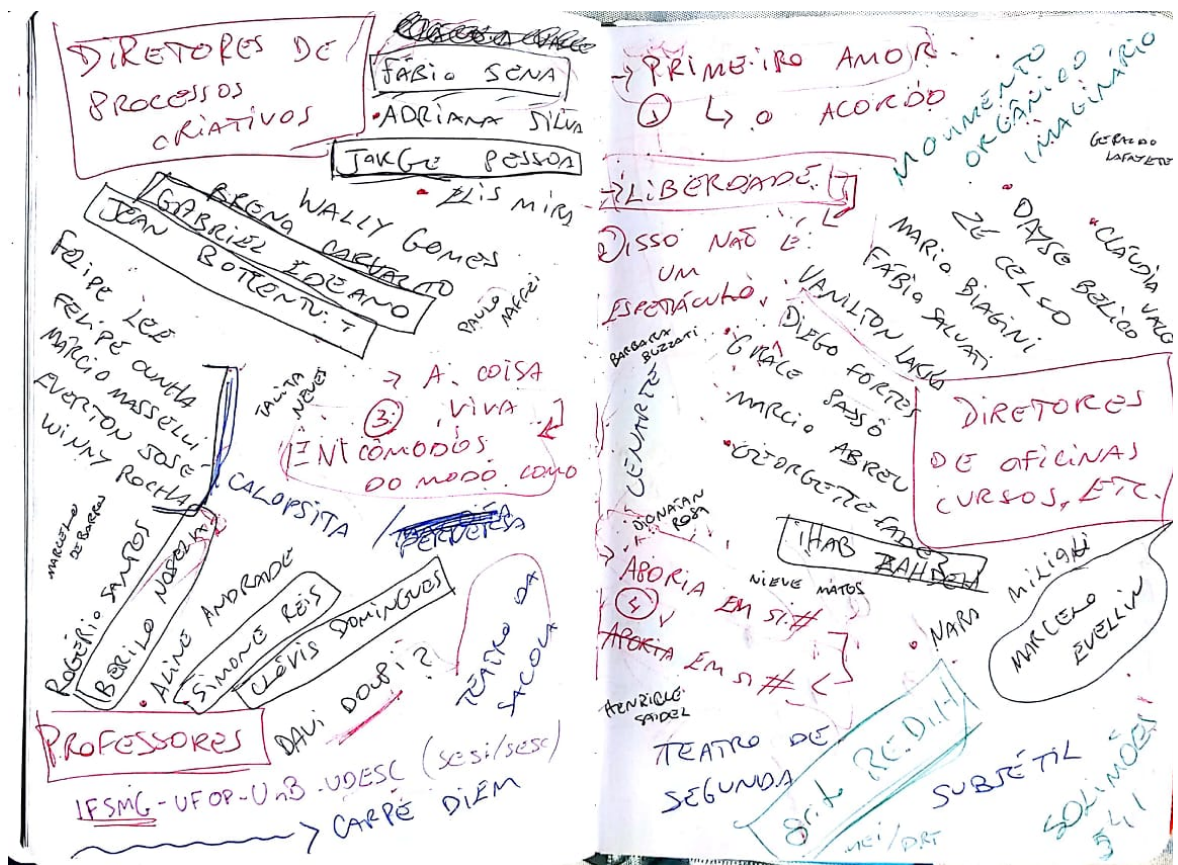 DIRETORES DE
PROCESSOS
CRIATIVOS
FÁBIO SENA
•ADRIANA SILVA
JORGE PESSOA
• ELIS MIRA
WALLY GOMES
BRENO CARVALHO
GABRIEL IDEANO
JEAN BOTTENTUIT
PAULO MAFFEI
FELIPE LEE
FELIPE CUNHA
MÁRCIO MASSELLI
EVERTON JOSÉ
WINNY ROCHA
TALITA
NEVES
→ A COISA
3 VIVA
ENTCÔMODOS
DO MODO COMO
CALOPSITA
MARCELO
DE BARRO
ROGÉRIO SANTOS
BERILO NOSELLA
• ALINE ANDRADE
SIMONE REIS
CLÓVIS DOMINGUES
DAVI DOLPI?
TEATRO DA
SACOLA
PROFESSORES
IFSMG-UFOP-UnB-UDESC (SESI/SESC)
CARPE DIEM
→ PRIMEIRO AMOR
1 ↳ O ACORDO
→ LIBERDADE
2 ISSO NÃO É
UM
ESPETÁCULO
MOVIMENTO
ORGÂNICO
IMAGINÁRIO
GERALDO
LAFAYETE
•CLÁUDIA
• DAYSE BELICO
ZE CELSO
MARIO BIAGINI
FÁBIO SALVATI
VANILTON LAKKA
DIEGO FORTES
•GRACE PASSÔ
MARCIO ABREU
•GEORGETTE FADEL
BARBARA
BUZZATI
CENARTE
DIRETORES
DE OFICINAS
CURSOS, ETC.
IHAB ZAHDEH
DIONATAN
ROSA
NIEVE MATOS
→ APORIA EM SI #
5
APORIA EM SI #
• NARA MILIGHI
MARCELO
EVELLIN
HENRIQUE
SAIDEL
TEATRO DE
SEGUNDA
Grito RE.DI.H
MEI/DRT
SUBSÉTIL
SOLIMÕES
541